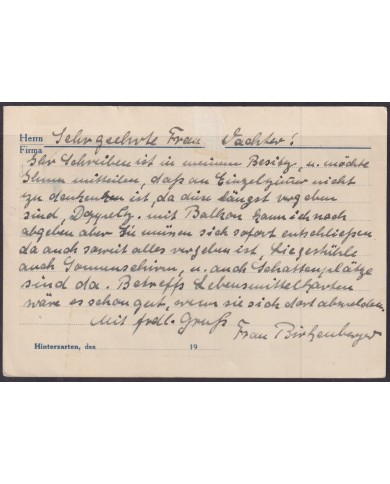 Herrn Sehrgeehrte Frau Vachter!
Firma
Ihr Schreiben ist in meinem Besitz, u. möchte
Ihnen mitteilen, daß an Einzelzimer nicht
zu denken ist, da diese längst vergeben
sind, Doppelz. mit Balkon kann ich noch
abgeben aber Sie müssen sich sofort entschließen
da auch soweit alles vergeben ist, Liegestühle
auch Sonnenschirm, u. auch Schattenplätze
sind da. Betreffs Lebensmittelkarten
wäre es schon gut, wenn sie sich dort abmelden.
Mit frdl. Gruß
Frau Birkenberger
Hinterzarten, den 19